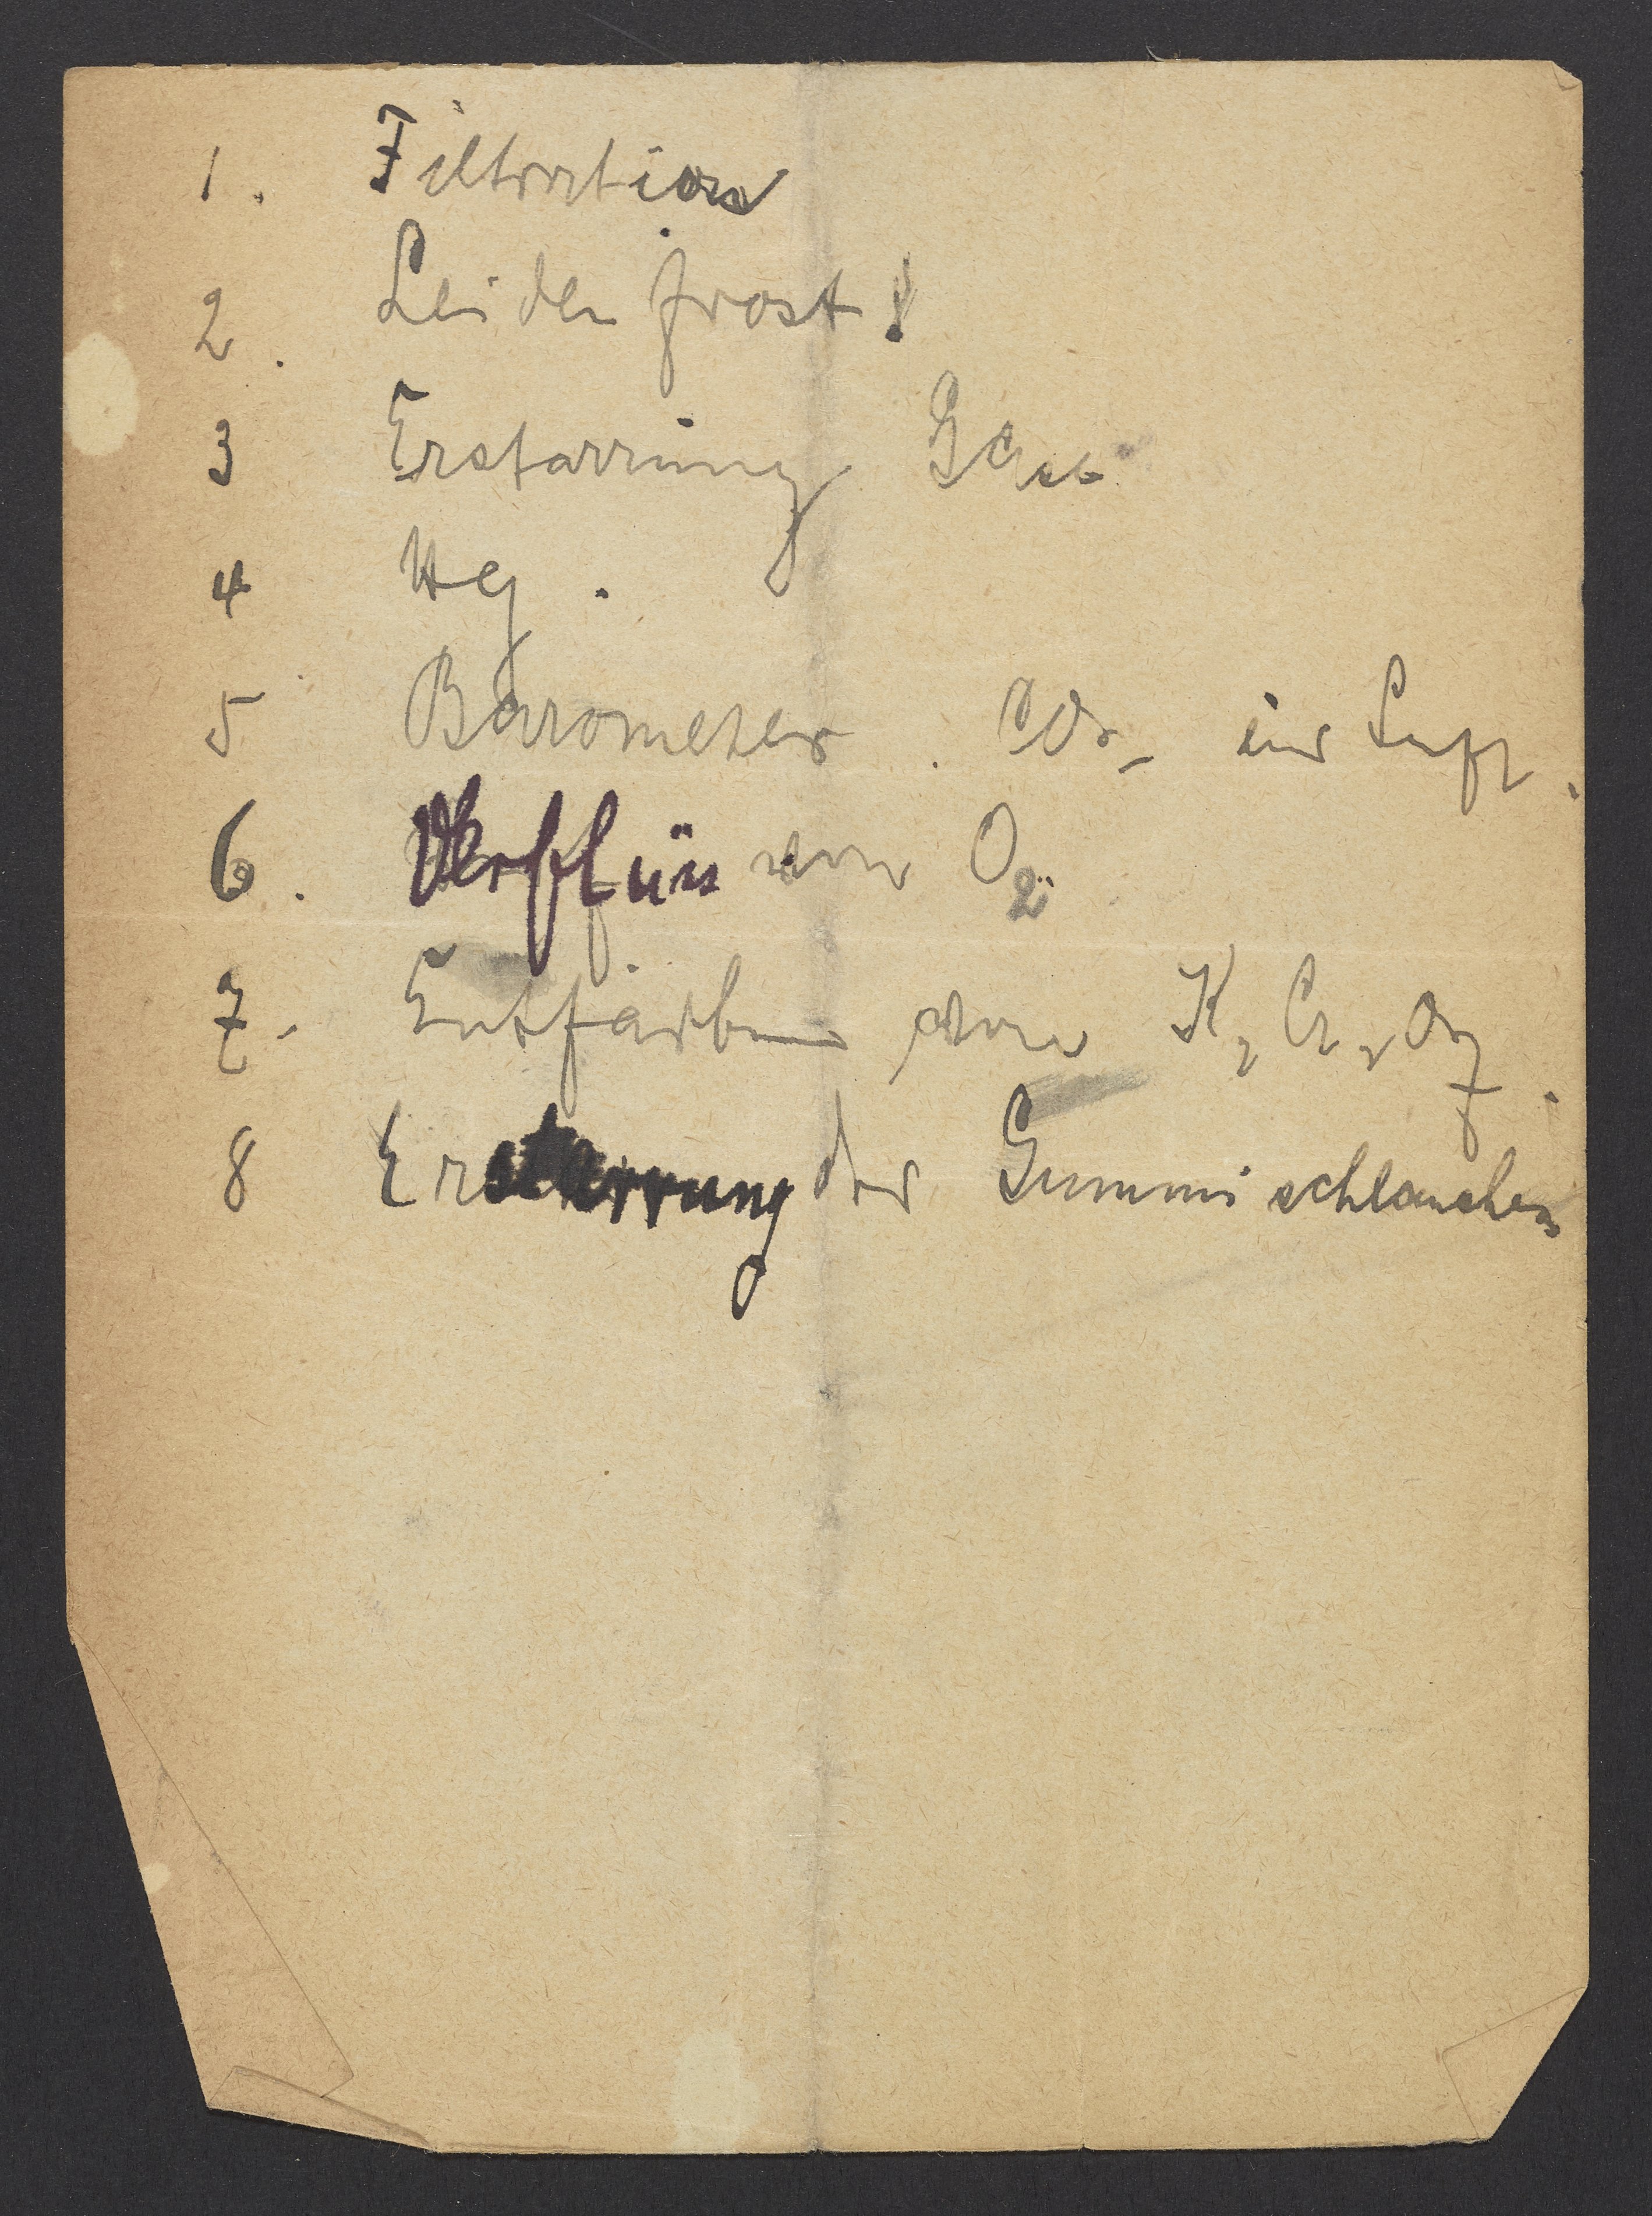 1. Filtration
2. Leidenfrost!
3 Erstarrung
4 Hg.
5 Barometer. CO₂ in Luft.
6. Verflüss von O₂
7. Entfärben von K₂Cr₂O₇.
8 Erstarrung der Gummischlauches